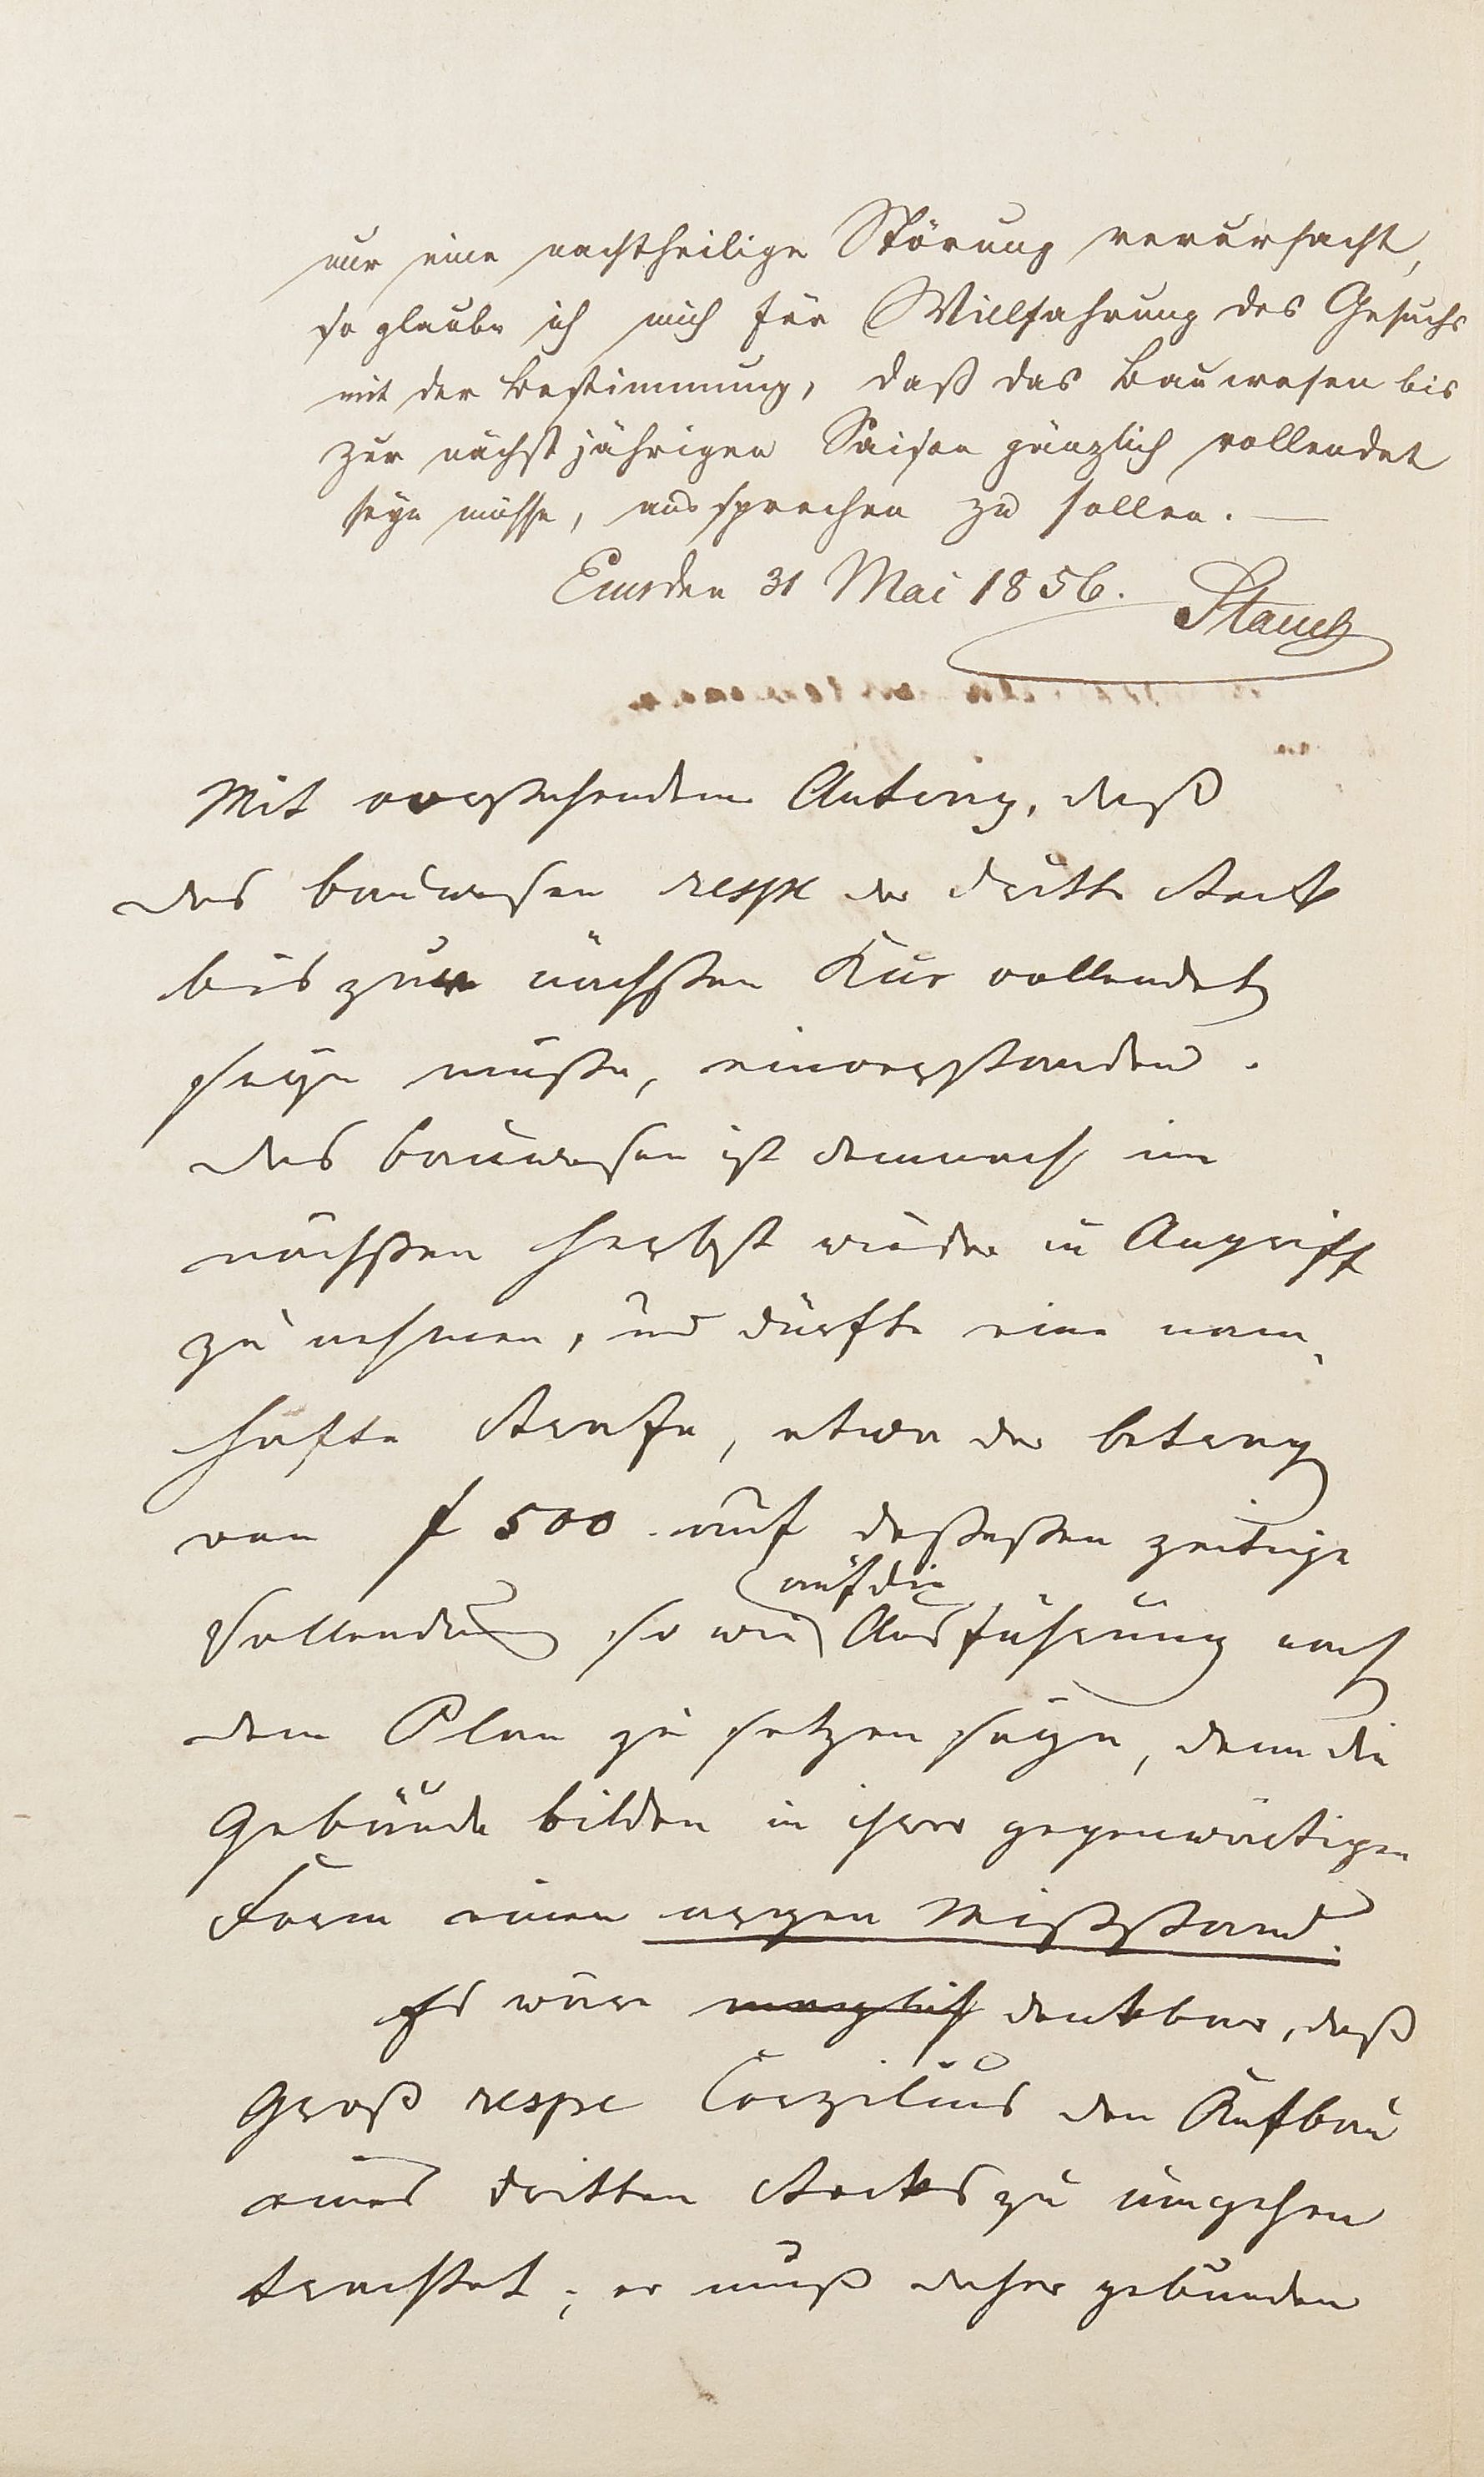 nur eine nachtheilige Störung verursacht,
so glaube ich mich für Willfahrung des Gesuchs
mit der Bestimmung, daß das Bauwesen bis
zur nächstjährigen Saison gänzlich vollendet
seyn müsse, aussprechen zu sollen. —
Ems den 31 Mai 1856.
Mit vorstehendem Antrag, daß
das Bauwesen respe der dritte Stock
bis zur nächsten Kur vollendet
seyn müße, einverstanden.
Das Bauwesen ist demnach im
nächsten Herbst wieder in Angriff
zu nehmen, und dürfte eine nam„
hafte Strafe, etwa der Betrag
von f 500. auf deßeßen zeitige
Vollendung so wie auf die Ausführung nach
dem Plan zu setzen seyn, denn die
Gebäude bilden in ihrer gegenwärtigen
Form einen argen Mißstand.
Es wäre möglich denkbar, daß
Groß respe Corzilius den Aufbau
eines dritten Stocks zu umgehen
trachtet; er muß daher gebunden